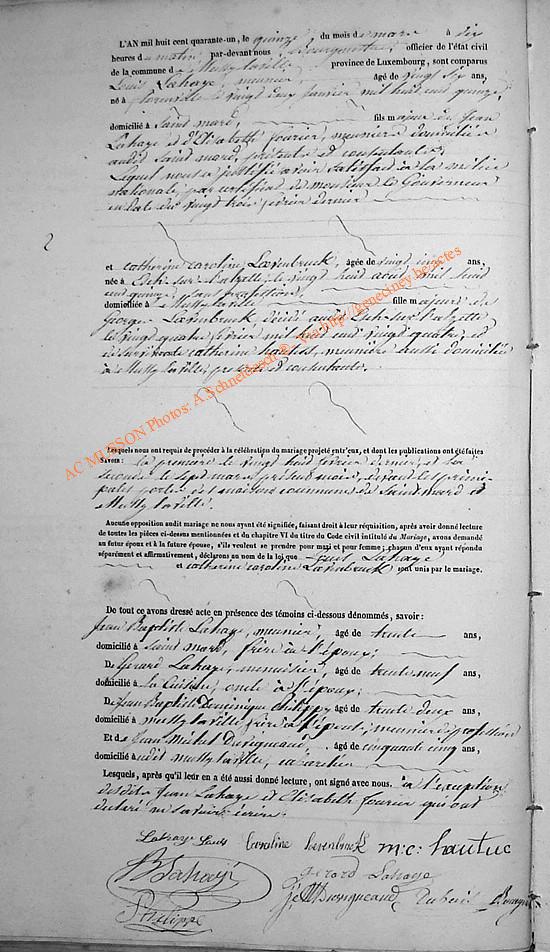 L'AN mil huit cent quarante-un, le quinze du mois de mars à dix
heures du matin par-devant nous Bourgmestre officier de l'état civil
de la commune de Mussy la ville province de Luxembourg, sont comparus
Louis Lahaye, meunier âgé de vingt six ans,
né à florenville le vingt deux janvier mil huit cent quinze,
domicilié à Saint mard, fils majeur de Jean
Lahaye et d'Elisabeth fourier, meuniers domiciliés
audit Saint mard, présents et consentants,
Lequel nous a justifié avoir satisfait à la milice
nationale, par certificat de monsieur le Gouverneur
en date du vingt trois février dernier
2
et catherine caroline Lavenbruck, âgée de vingt cinq ans,
née à Esch sur l'alzette, le vingt huit aout mil huit
cent quinze, sans profession,
domiciliée à Mussy la ville fille majeure de
George Lavenbruck décédé audit Esch sur l'alzette
le vingt quatre février mil huit cent vingt quatre, et
de catherine, meunière domiciliée
à Mussy la ville, présente et consentante.
Lesquels nous ont requis de procéder à la célébration du mariage projeté entr'eux, et dont les publications ont été faites
Savoir : la première le vingt huit février dernier, et la
seconde le sept mars présent mois, devant les princi-
pales portes des maisons communes de Saint mard et
Mussy la ville.
Aucune opposition audit mariage ne nous ayant été signifiée, faisant droit à leur réquisition, après avoir donné lecture
de toutes les pièces ci-dessus mentionnées et du chapitre VI du titre du Code civil intitulé du Mariage, avons demandé
au futur époux et à la future épouse, s'ils veulent se prendre pour mari et pour femme; chacun d'eux ayant répondu
séparément et affirmativement, déclarons au nom de la loi que Louis Lahaye
et catherine caroline Lavenbruck sont unis par le mariage.
De tout ce avons dressé acte en présence des témoins ci-dessous dénommés, savoir :
Jean Baptiste Lahaye, meunier, âgé de trente ans,
domicilié à Saint mard, frère à l'époux;
De Gérard Lahaye, menuisier, âgé de trente neuf ans,
domicilié à La Cuisine, oncle à l'époux;
De Jean Baptiste Dominique Philippy âgé de trente deux ans,
domicilié à mussy la ville frère à l'épouse, meunier de profession
Et de Jean Michel Durigneaud, âgé de cinquante cinq ans,
domicilié audit mussy la ville,
Lesquels, après qu'il leur en a été aussi donné lecture, ont signé avec nous. à l'exception
desdits Jean Lahaye et Elisabeth fourier qui ont
declaré ne savoir écrire.
Lahaye Louis Caroline Lavenbruck m: c: hautus
B Lahaye Gérard Lahaye
Philippe J M Durigneaud
AC MUSSON Photos: A.Schneidesch ® - Via http://geneciney.be/actes